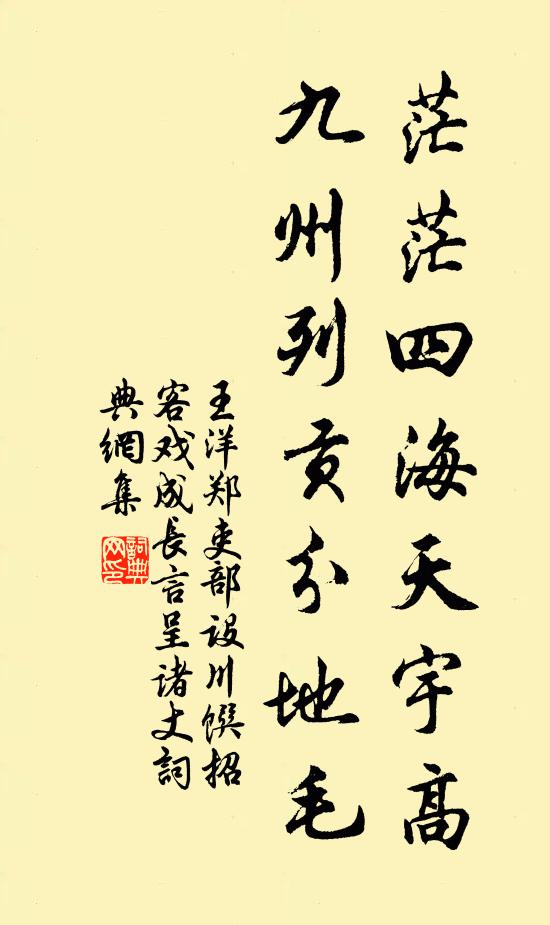 茫茫四海天宇高
九州列贡分地毛
王洋郑吏部设川馔招
客戏成長言呈诸丈詞
典網集
詞典
网印